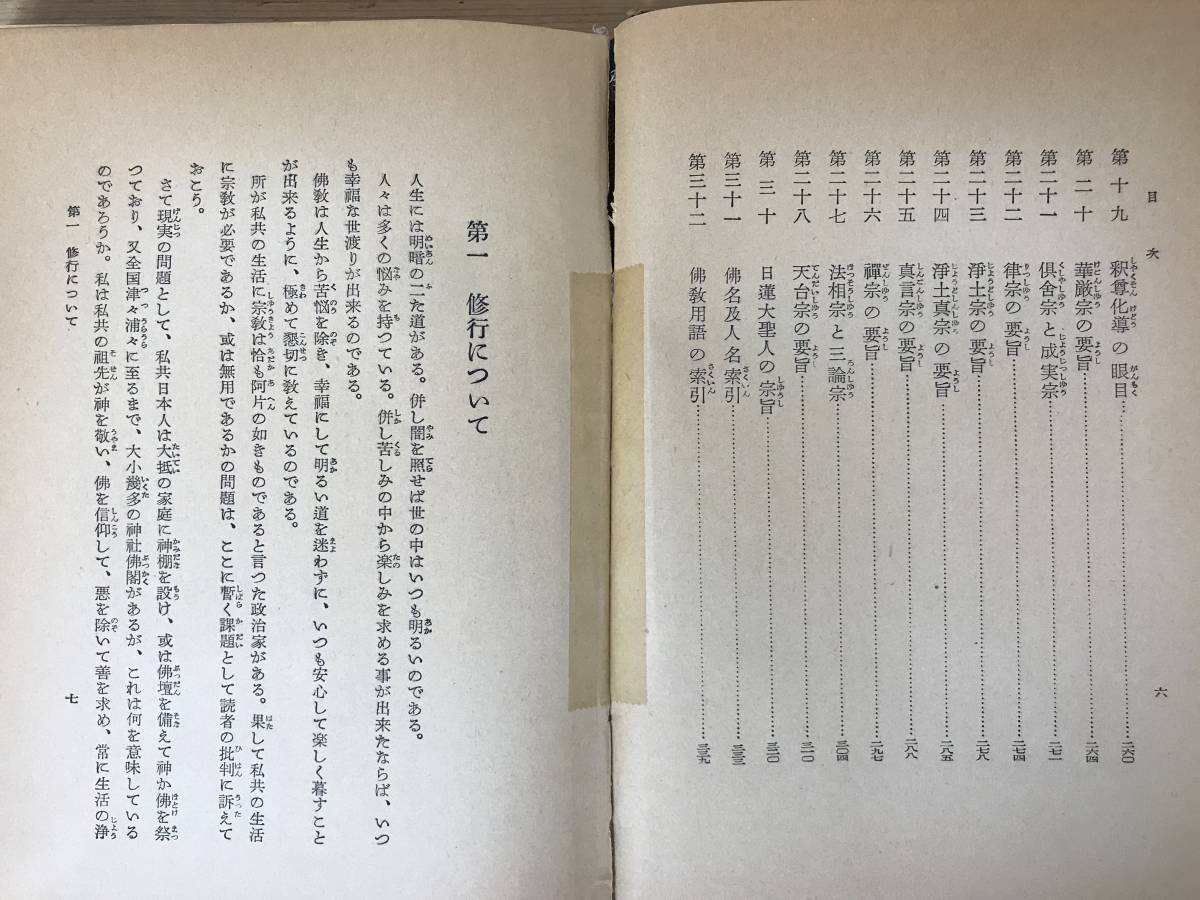 目次
第十九 釈尊化導の眼目 二六〇
第二十 華厳宗の要旨 二六四
第二十一 倶舎宗と成実宗 二七一
第二十二 律宗の要旨 二七四
第二十三 淨土宗の要旨 二七八
第二十四 淨土真宗の要旨 二八五
第二十五 真言宗の要旨 二八八
第二十六 禪宗の要旨 二九七
第二十七 法相宗と三論宗 三〇四
第二十八 天台宗の要旨 三一〇
第三十 日蓮大聖人の宗旨 三二〇
第三十一 佛名及人名索引 三三三
第三十二 佛敎用語の索引 三三九
六
第一 修行について
人生には明暗の二た道がある。併し闇を照せば世の中はいつも明るいのである。
人々は多くの悩みを持つている。併し苦しみの中から楽しみを求める事が出来たならば、いつ
も幸福な世渡りが出来るのである。
佛敎は人生から苦悩を除き、幸福にして明るい道を迷わずに、いつも安心して楽しく暮すこと
が出来るように、極めて懇切に敎えているのである。
所が私共の生活に宗敎は恰も阿片の如きものであると言つた政治家がある。果して私共の生活
に宗敎が必要であるか、或は無用であるかの問題は、ここに暫く課題として読者の批判に訴えて
おこう。
さて現実の問題として、私共日本人は大抵の家庭に神棚を設け、或は佛壇を備えて神か佛を祭
つており、又全国津々浦々に至るまで、大小幾多の神社佛閣があるが、これは何を意味している
のであろうか。私は私共の祖先が神を敬い、佛を信仰して、悪を除いて善を求め、常に生活の浄
第一 修行について
七